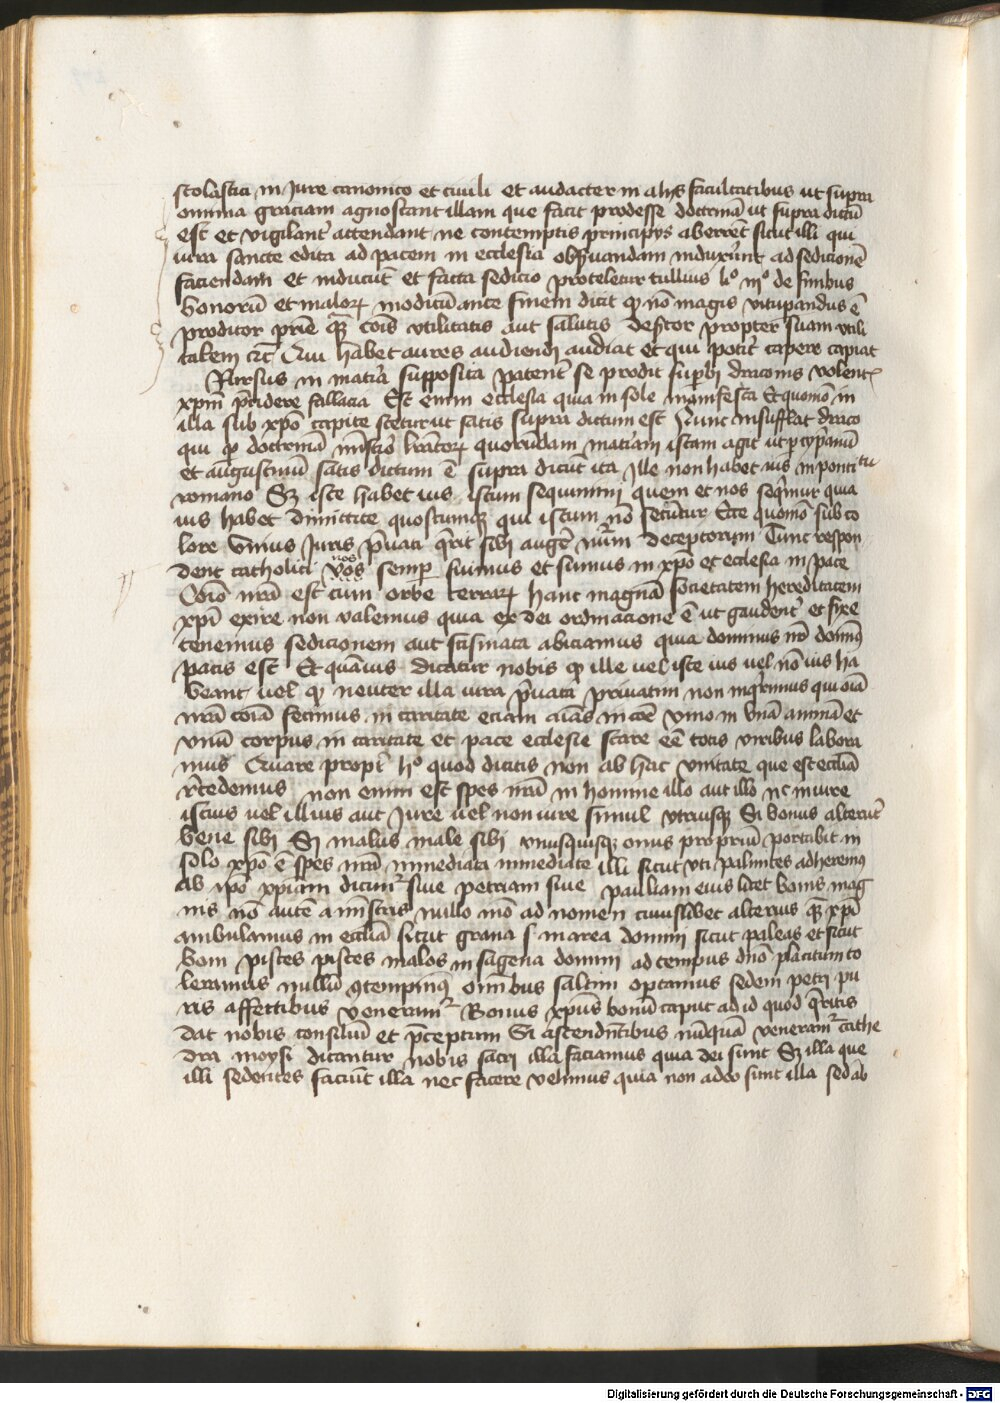 scolastici in Jure canonico et ciuili et audacter in aliis facultatibus ut supra
omnia graciam agnoscant illam que facit prodesse doctrinā ut supra dictū
est et vigilant attendant ne contemptis principiis aberrēt sicut illi qui
iura sancte edita ad pacem in ecclesia obseruandam induxerunt ad sedicionē
faciendam et inducūt et facta sedicio proteletur tullius li° iii° de finibus
bonorū et malorꝝ modicū ante finem dicit ꝙ nō magis vitupandus ē
proditor prīe quā cōis vtilitatis aut salutis desertor propter suam vtili
tatem etc̄ Qui habet aures audiendi audiat et qui potit capere capiat
Rursus in materia supposita patent se prodit superbi draconis volent
xpm̄ prēidere fallacia Est enim ecclesia quia in sole manifesta Et quomō in
illa sub xpō capite steterut satis supra dictum est Hunc insufflat draco
qui ꝓ doctrinā quorundam materiam istam agit ut per cyprianū
et augustinū satis dictum ē supra dicūt ita Ille non habet ius in pontitu
romano Sꝫ iste habet ius istum sequimini quem et nos seqimur quia
ius habet Dimittite quoscumqꝫ qui istum nō secuntur Ecce quomō sub co
lore vnius Juris pruati qrit sibi augeri numm deceptorum Tunc respon
dent catholici nos vos semper fuimus et sumus in xpō et ecclesia in pace
Cōio nrā est cum orbe terrarꝝ hanc magnā societatem hereditatem
xpī exire non valemus quia ex dei ordinacione ē ut gaudent et fixe
tenemus sedicionem aut scismata abiciamus quia dominus nr̄ dominus
pacis est Et quāuis dicatur nobis ꝙ ille uel iste ius uel nō ius ha
beant uel ꝙ neuter illa iura priuata priuatim non inqrimus qui oīa
nrā cōia fecimus in caritate eciam aīas in xpō vino in vnā animā et
vnū corpus in caritate et pace ecclesie stare eē totis viribus labora
mus Quare propt h° quod dicitis non ab hac vnitate que est ecclīa
rēcedemus non enim est spes nrā in homine illo aut illo nc in iure
istius uel illius aut Jure uel non iure simul vtriusqꝫ Si bonus alterut
bene sibi Si malus male sibi vnusquisqꝫ onus propriū portabit in
solo xpō ē spes nrā immediata immediate illi sicut viti palmites adheremꝰ
ab ipō xpiani dicimr siue petriani siue pauliani eius licet bonis mag
nis nō autē a mīstris nullo mō ad nomen cuiuslibet alterius quā xpī
ambulamus in ecclīa sicut grana s in area domini sicut paleas et sicut
boni pisces pisces malos in sagena domini ad tempus dnō placitum to
leramus nullū ꝯtempnimꝰ omibus saltim optamus sedem petri pu
ris affectibus veneramr Bonus xpūs bonū caput ad id quod qritis
dat nobis consiliū et pceptum Si ascendentibus nūquā veneramr cathe
dra moysi dicantur nobis sacri illa faciamus quia dei sunt Sꝫ illa que
illi sedentes faciūt illa nec facere velimus quia non a deo sunt illa sed ab
Digitalisierung gefördert durch die Deutsche Forschungsgemeinschaft - DFG